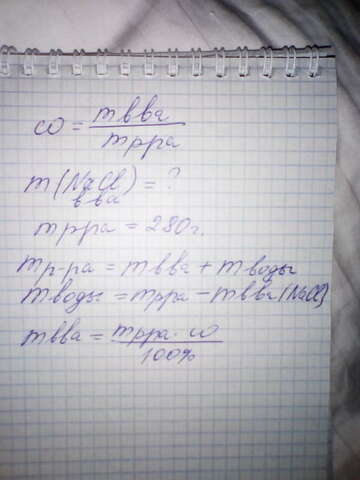 ω = mвва / mрра
m(NaCl) = ?
вва
mрра = 280г.
mр-ра = mвва + mводы
mводы = mрра - mвва (NaCl)
mвва = mрра · ω / 100%